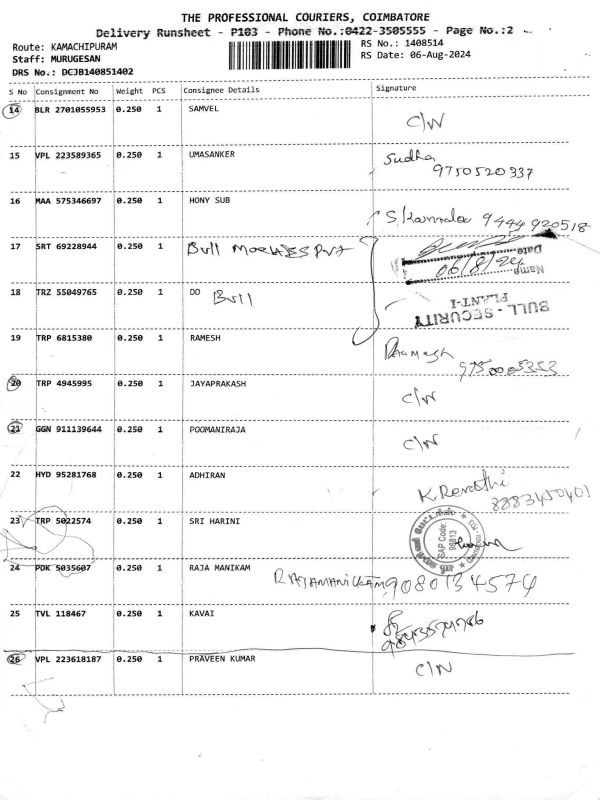 THE PROFESSIONAL COURIERS, COIMBATORE
Delivery Runsheet - P103 - Phone No.:0422-3505555 - Page No.:2
Route: KAMACHIPURAM
Staff: MURUGESAN
DRS No.: DCJB140851402
RS No.: 1408514
RS Date: 06-Aug-2024
S No Consignment No Weight PCS Consignee Details Signature
14 BLR 2701055953 0.250 1 SAMVEL C/N
15 VPL 223589365 0.250 1 UMASANKER Sudha
9750520337
16 MAA 575346697 0.250 1 HONY SUB S. Kamala 9444920518
17 SRT 69228944 0.250 1 Bull Machines Pvt
Date
06/8/24
Name
18 TRZ 55049765 0.250 1 DO Bull
BULL - SECURITY
PLANT-I
19 TRP 6815380 0.250 1 RAMESH Ramesh
20 TRP 4945995 0.250 1 JAYAPRAKASH C/N
21 GGN 911139644 0.250 1 POOMANIRAJA C/N
22 HYD 95281768 0.250 1 ADHIRAN K. Revathi
8883450401
23 TRP 5022574 0.250 1 SRI HARINI
SAP Code:
98813
24 PDK 5035607 0.250 1 RAJA MANIKAM RAJAMANICKAM 9080134574
25 TVL 118467 0.250 1 KAVAI
26 VPL 223618187 0.250 1 PRAVEEN KUMAR C/N